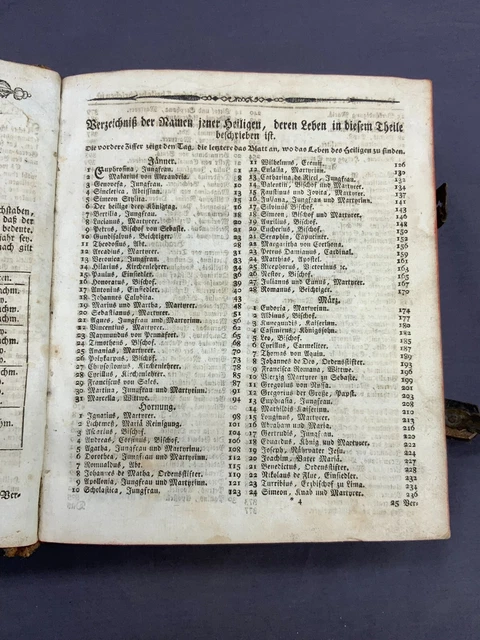 Verzeichniß der Namen jener Heiligen, deren Leben in diesem Theile
beschrieben ist.
Die vordere Ziffer zeigt den Tag, die letztere das Blatt an, wo das Leben des Heiligen zu finden.
Jänner.
1 Euphrosina, Jungfrau.
2 Makarius von Alexandria.
3 Genovefa, Jungfrau.
4 Sincletica, Aebtissin.
5 Simeon Stylita.
6 Der heilige drey König-tag.
7 Bertilia, Jungfrau.
8 Lucianus, Martyrer.
9 Petrus, Bischof von Sebaste.
10 Gundisalvus, Beichtiger.
11 Theodosius, Abt.
12 Arcadius, Martyrer.
13 Veronica, Jungfrau.
14 Hilarius, Kirchenlehrer.
15 Paulus, Einsiedler.
16 Honoratus, Bischof.
17 Antonius, Einsiedler.
18 Johannes Calybita.
19 Marius und Martha, Martyrer. 48
20 Sebastianus, Martyrer.
21 Agnes, Jungfrau und Martyrinn. 56
22 Vincentius, Martyrer.
23 Raymundus von Pennafort. 65
24 Timotheus, Bischof. 68
25 Ananias, Martyrer. 70
26 Polykarpus, Bischof. 73
27 Chrysostomus, Kirchenlehrer. 78
28 Cyrillus, Kirchenlehrer.
29 Franciscus von Sales. 87
30 Martina, Jungfrau und Martyrinn. 91
31 Marcella, Wittwe. 94
Hornung.
1 Ignatius, Martyrer.
2 Lichtmeß, Mariä Reinigung. 101
3 Ascarius, Bischof. 104
4 Andreas, Corsinus, Bischof. 106
5 Agatha, Jungfrau und Martyrinn.
6 Dorothea, Jungfrau und Martyrinn. 112
7 Romualdus, Abt.
8 Johannes de Matha, Ordensstifter. 119
9 Apollonia, Jungfrau und Martyrinn. 121
10 Scholastica, Jungfrau. 123
11 Wilhelmus, Eremit. 126
12 Eulalia, Martyrinn. 130
13 Catharina de Ricci, Jungfrau. 132
14 Valentin, Bischof und Martyrer. 134
15 Faustinus und Jovita, Martyrer. 137
16 Juliana, Jungfrau und Martyrinn. 141
17 Silvinus Bischof. 143
18 Simeon, Bischof und Martyrer. 146
19 Auxilius, Bischof. 148
20 Eucherius, Bischof. 150
21 Serapion, Capuciner. 152
22 Margaritha von Corthona. 156
23 Petrus Damianus, Cardinal. 159
24 Matthias, Apostel. 161
25 Nicephorus, Victorinus ꝛc. 163
26 Nestor, Bischof. 165
27 Julianus und Eunus, Martyrer. 167
28 Romanus, Beichtiger. 170
März.
1 Eudoxia, Martyrinn. 174
2 Albinus, Bischof. 177
3 Kunegundis, Kaiserinn. 180
4 Casimirus, Königssohn. 182
5 Leo, Bischof. 185
6 Cyrillus, Carmeliter. 187
7 Thomas von Aquin. 189
8 Johannes de Deo, Ordensstifter. 193
9 Francisca Romana, Wittwe. 196
10 Vierzig Martyrer zu Sebaste. 199
11 Gregorius von Nyssa. 201
12 Gregorius der Große, Papst. 203
13 Euphrasia, Jungfrau.
14 Mathildis Kaiserinn. 210
15 Longinus, Martyrer.
16 Abraham und Maria.
17 Gertrudis, Jungfrau. 220
18 Eduardus, König und Martyrer. 222
19 Joseph, Nährvater Jesu.
20 Joachim, Vater Mariä. 227
21 Benedictus, Ordensstifter. 228
22 Nikolaus de Flue, Einsiedler. 232
23 Turribius, Erzbischof zu Lima. 234
24 Simeon, Knab und Martyrer. 246
* 4
25 Ver-